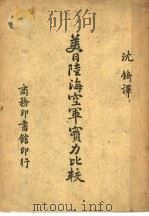 沈錡譯
美日陸海空軍實力比較
商務印書館印行